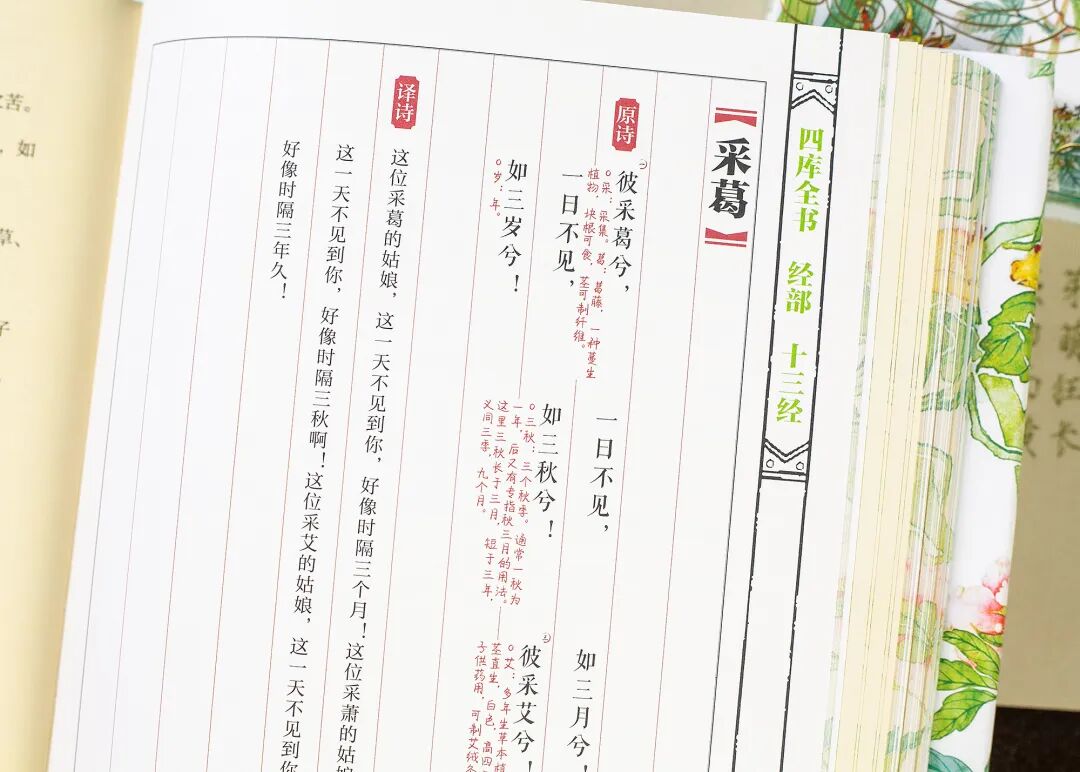 四库全书 经部 十三经
【采葛】
原诗
彼采葛兮,
○采:采集。葛:葛藤,一种蔓生
植物,块根可食,茎可制纤维。
一日不见,
如三月兮!
一日不见,
如三秋兮!
○三秋:三个秋季。通常一秋为
一年,后又有专指秋三月的用法。
这里三秋长于三月,短于三年,
义同三季,九个月。
彼采艾兮!
○艾:多年生草本植
茎直生,白色,高四
子供药用,可制艾绒
如三岁兮!
○岁:年。
译诗
这位采葛的姑娘,这一天不见到你,好像时隔三个月!这位采萧的姑娘
这一天不见到你,好像时隔三秋啊!这位采艾的姑娘,这一天不见到你
好像时隔三年久!
苦。
,如
草、
子